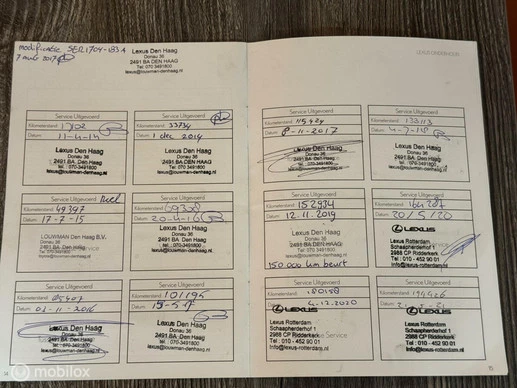 modificatie SER1704-1B3A
7 mrt 2017
Lexus Den Haag
Donau 36
2491 BA DEN HAAG
Tel: 070 3491800
lexus@louwman-denhaag.nl
Service Uitgevoerd
Kilometerstand:
Datum: 11-4-14
Lexus Den Haag
Donau 36
2491 BA Den Haag
Tel. 070-3491800
lexus@louwman-denhaag.nl
Service Uitgevoerd
Kilometerstand: 33734
Datum: 1 dec 2014
Lexus Den Haag
Donau 36
2491 BA DEN HAAG
Tel: 070 3491800
lexus@louwman-denhaag.nl
Service Uitgevoerd
Kilometerstand: 49397
Datum: 17-7-15
LOUWMAN Den Haag B.V.
Donau 36
2491 BA Den Haag
Service Uitgevoerd
Kilometerstand: 69328
Datum: 20-4-16
Lexus Den Haag
Donau 36
2491 BA DEN HAAG
Tel: 070 3491800
lexus@louwman-denhaag.nl
Service Uitgevoerd
Kilometerstand: 85407
Datum: 01-11-2016
Lexus Den Haag
Donau 36
2491 BA Den Haag
Service Uitgevoerd
Kilometerstand: 101195
Datum:
Lexus Den Haag
Donau 36
2491 BA DEN HAAG
Tel: 070 3491800
lexus@louwman-denhaag.nl
Service Uitgevoerd
Kilometerstand: 115424
Datum: 8-11-2017
Lexus Den Haag
Donau 36
2491 BA Den Haag
Service Uitgevoerd
Kilometerstand: 133113
Datum: 4-7-18
Lexus Den Haag
Donau 36
2491 BA Den Haag
Tel. 070-3491800
lexus@louwman-denhaag.nl
Service Uitgevoerd
Kilometerstand: 152934
Datum: 12.11.2019
Lexus Den Haag
Donau 36
2491 BA DEN HAAG
Tel: 070 3491800
lexus@louwman-denhaag.nl
150.000 km beurt
Service Uitgevoerd
Kilometerstand: 164287
Datum: 20/5/20
LEXUS
Lexus Rotterdam
Schaapherderhof 1
2988 CP Ridderkerk
Tel: 010 - 452 90 01
Info@lexus-rotterdam.nl
Service Uitgevoerd
Kilometerstand: 180158
Datum: 4.12.2020
LEXUS
Lexus Rotterdam
Schaapherderhof 1
2988 CP Ridderkerk
Tel : 010 - 452 90 01
Info@lexus-rotterdam.nl
Service Uitgevoerd
Kilometerstand: 194426
Datum:
LEXUS
Lexus Rotterdam
Schaapherderhof 1
2988 CP Ridderkerk
Tel : 010 - 452 90 01
Info@lexus-rotterdam.nl
mobilox